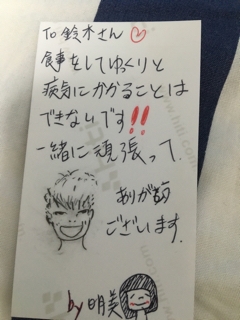 To 鈴木さん ♡
食事をしてゆくりと
病気にかかることは
できないです!!
一緒に頑張って、
ありが
ございます.
by 明美